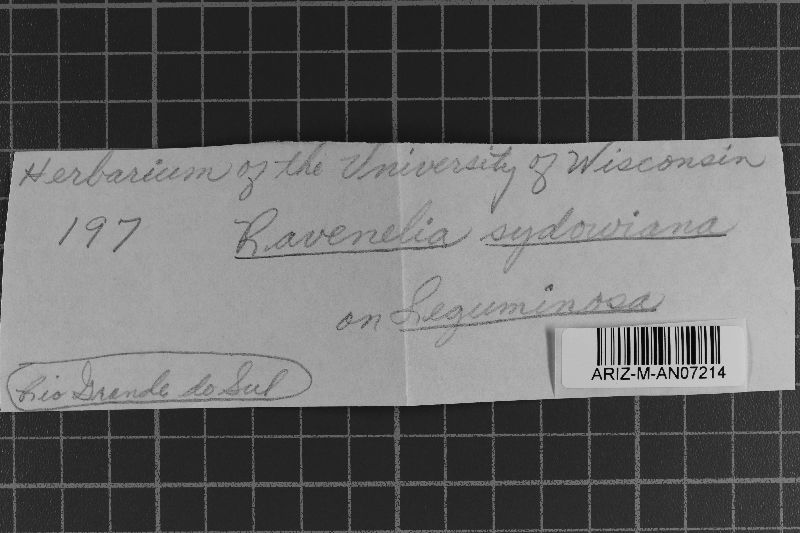 Herbarium of the University of Wisconsin
197 Ravenelia sydowiana
on Leguminosa
Rio Grande do Sul
ARIZ-M-AN07214